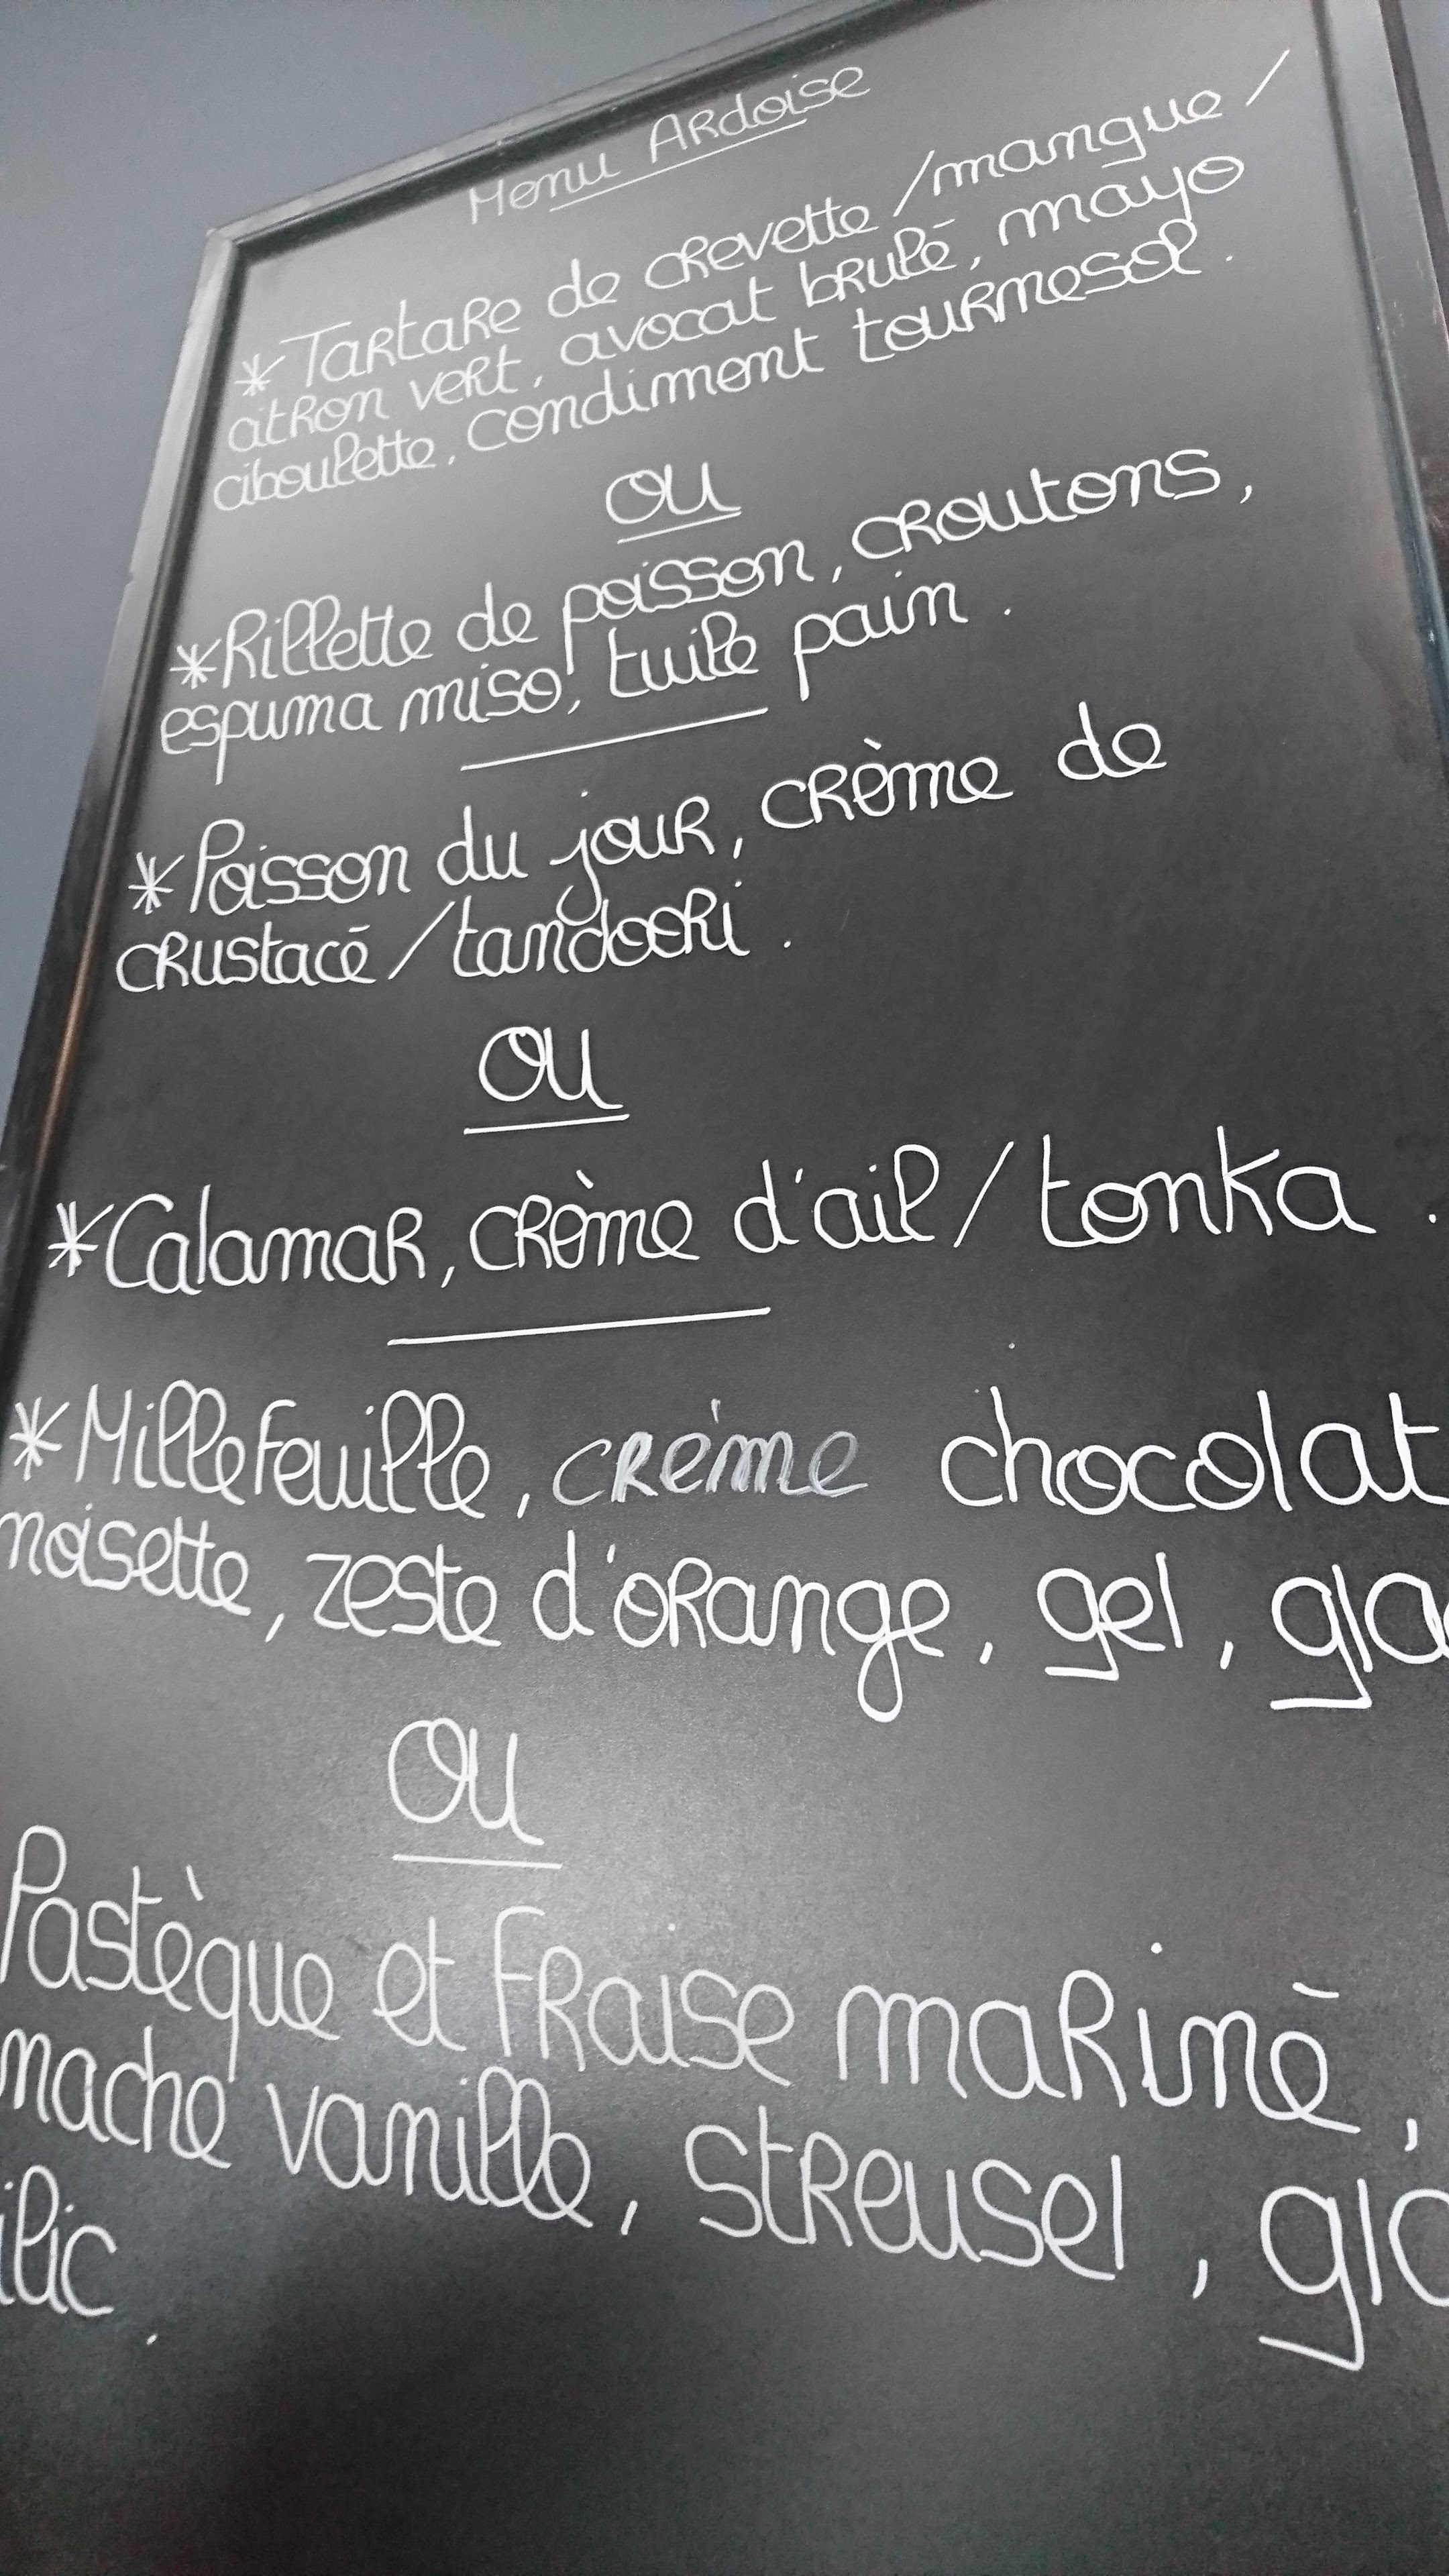 Menu Ardoise
*Tartare de crevette / mangue /
citron vert, avocat brulé, mayo
ciboulette, condiment tournesol.
OU
*Rillette de poisson, croutons,
espuma miso, tuile pain.
*Poisson du jour, crème de
crustacé / tandoori.
OU
*Calamar, crème d'ail / tonka.
*Millefeuille, crème chocolat
noisette, zeste d'orange, gel, gla
OU
Pastèque et fraise mariné,
nache vanille, streusel, gla
ilic.